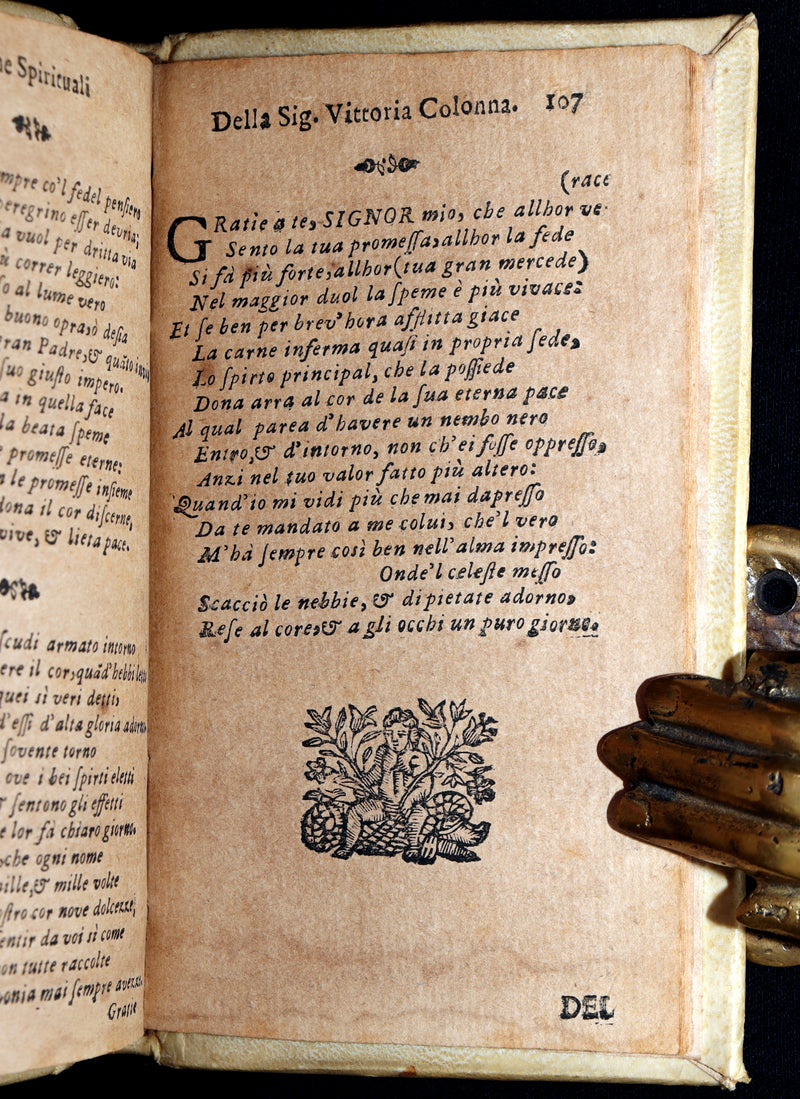 ne Spirituali
mpre co'l fedel pensiero
peregrino esser devria;
a vuol per dritta via
ù correr leggiero:
so al lume vero
buono opra, ò desia
ran Padre, & quāto
suo giusto impero.
a in quella face
la beata speme
promesse eterne:
n le promesse insieme
dona il cor discerne,
vive, & lieta pace.
scudi armato intorno
ere il cor, quād'hebbi
quei sì veri detti,
d'essi d'alta gloria adorno
sovente torno
ove i bei spirti eletti
sentono gli effetti
e lor fà chiaro giorno,
che ogni nome
mille, & mille volte
ostro cor nove dolcezze;
entir da voi sì come
on tutte raccolte
mai sempre
Gratie
Della Sig. Vittoria Colonna. 107
(race
GRatie a te, SIGNOR mio, che allhor ve-
Sento la tua promessa, allhor la fede
Si fà più forte, allhor (tua gran mercede)
Nel maggior duol la speme è più vivace:
Et se ben per brev'hora afflitta giace
La carne inferma quasi in propria sede,
Lo spirto principal, che la possiede
Dona arra al cor de la sua eterna pace
Al qual parea d'havere un nembo nero
Entro, & d'intorno, non ch'ei fosse oppresso,
Anzi nel tuo valor fatto più altero:
Quand'io mi vidi più che mai dapresso
Da te mandato a me colui, che'l vero
M'hà sempre così ben nell'alma impresso:
Onde'l celeste messo
Scacciò le nebbie, & di pietate adorno,
Rese al core, & a gli occhi un puro giorno.
DEL